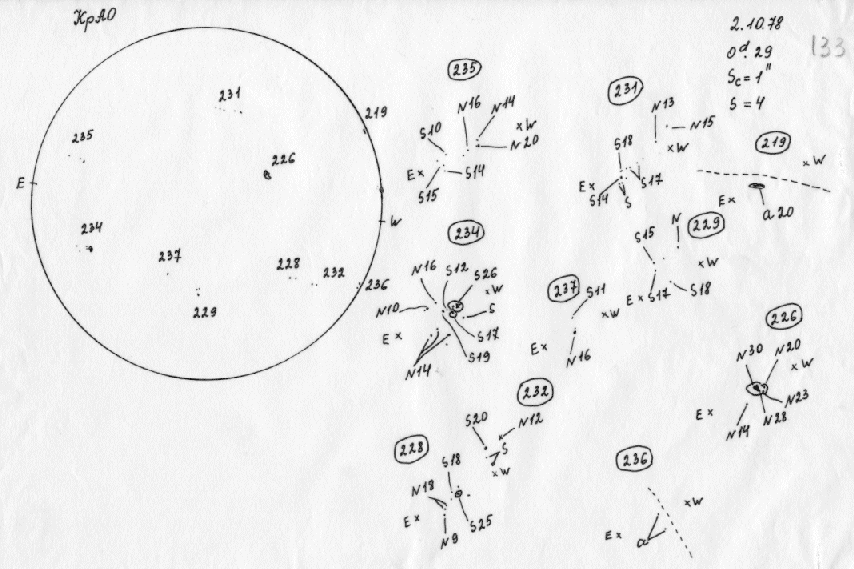 КрАО
2.10.78
133
0ᵈ.29
S꜀ = 1"
S = 4
231
219
235
226
E
W
234
237
228
232
236
229
235
N16
N14
S10
x W
N20
E x
S14
S15
231
N13
N15
S18
x W
E x
S17
S14
S
219
x W
E x
a 20
234
N16
S12
S26
x W
N10
S
E x
S17
S19
N14
237
S11
x W
E x
N16
229
N
S15
x W
E x
S17
S18
226
N30
N20
x W
N23
E x
N14
N28
232
S20
N12
S
x W
228
S18
N18
E x
S25
N9
236
x W
E x
a